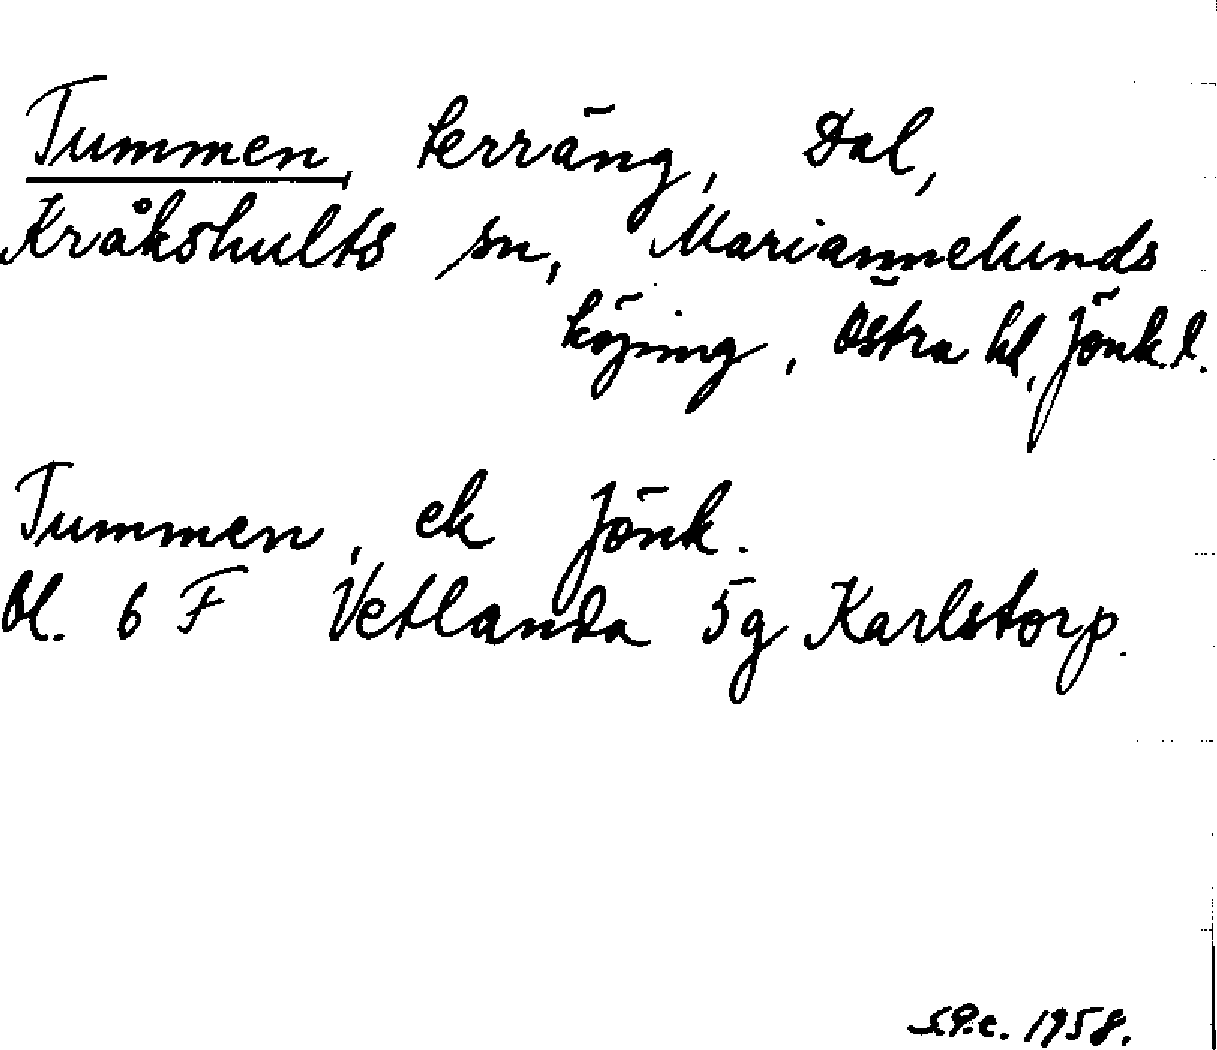 Tummen, terräng, Dal,
Kråkshults sn, Mariannelunds
köping, Östra hd, Jönk.l.
Tummen, ek Jönk.
bl. 6 F Vetlanda 5g Karlstorp.
1958.